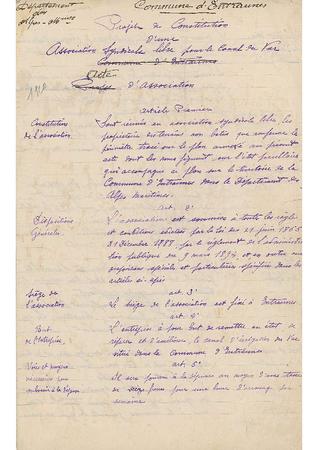 Département
des
Alpes-Mmes
Commune d'Entraunes
Projet de Constitution
d'une
Association Syndicale libre pour le Canal du Var
Commune d'Entraunes
Acte
d'Association
article Premier
Constitution
de l'association.
Sont réunis en association syndicale libre, les
propriétaires des terrains non batis que comprend le
périmètre tracé sur le plan annexé au présent
acte dont les noms figurent sur l'état parcellaire
qui accompagne ce plan sur le territoire de la
Commune d'Entraunes dans le Département des
Alpes Maritimes.
art. 2e
Dispositions
Générales.
L'association est soumise à toutes les règles
et conditions édictées par la loi des 21 juin 1865
22 décembre 1888, par le règlement de l'administra-
tion publique du 9 mars 1894, et en outre aux
dispositions spéciales et particulières spécifiées dans les
articles ci-après
Siège de
l'association.
art. 3e
Le siège de l'association est fixé à Entraunes
art. 4e
But
de l'entreprise.
L'entreprise a pour but de remettre en état, de
réparer et d'améliorer, le canal d'irrigation du Var
situé dans la Commune d'Entraunes.
art. 5e
Voies et moyens
nécessaires pour
subvenir à la dépense
Il sera pourvu à la dépense au moyen d'une taxe
de francs pour une heure d'arrosage par
semaine